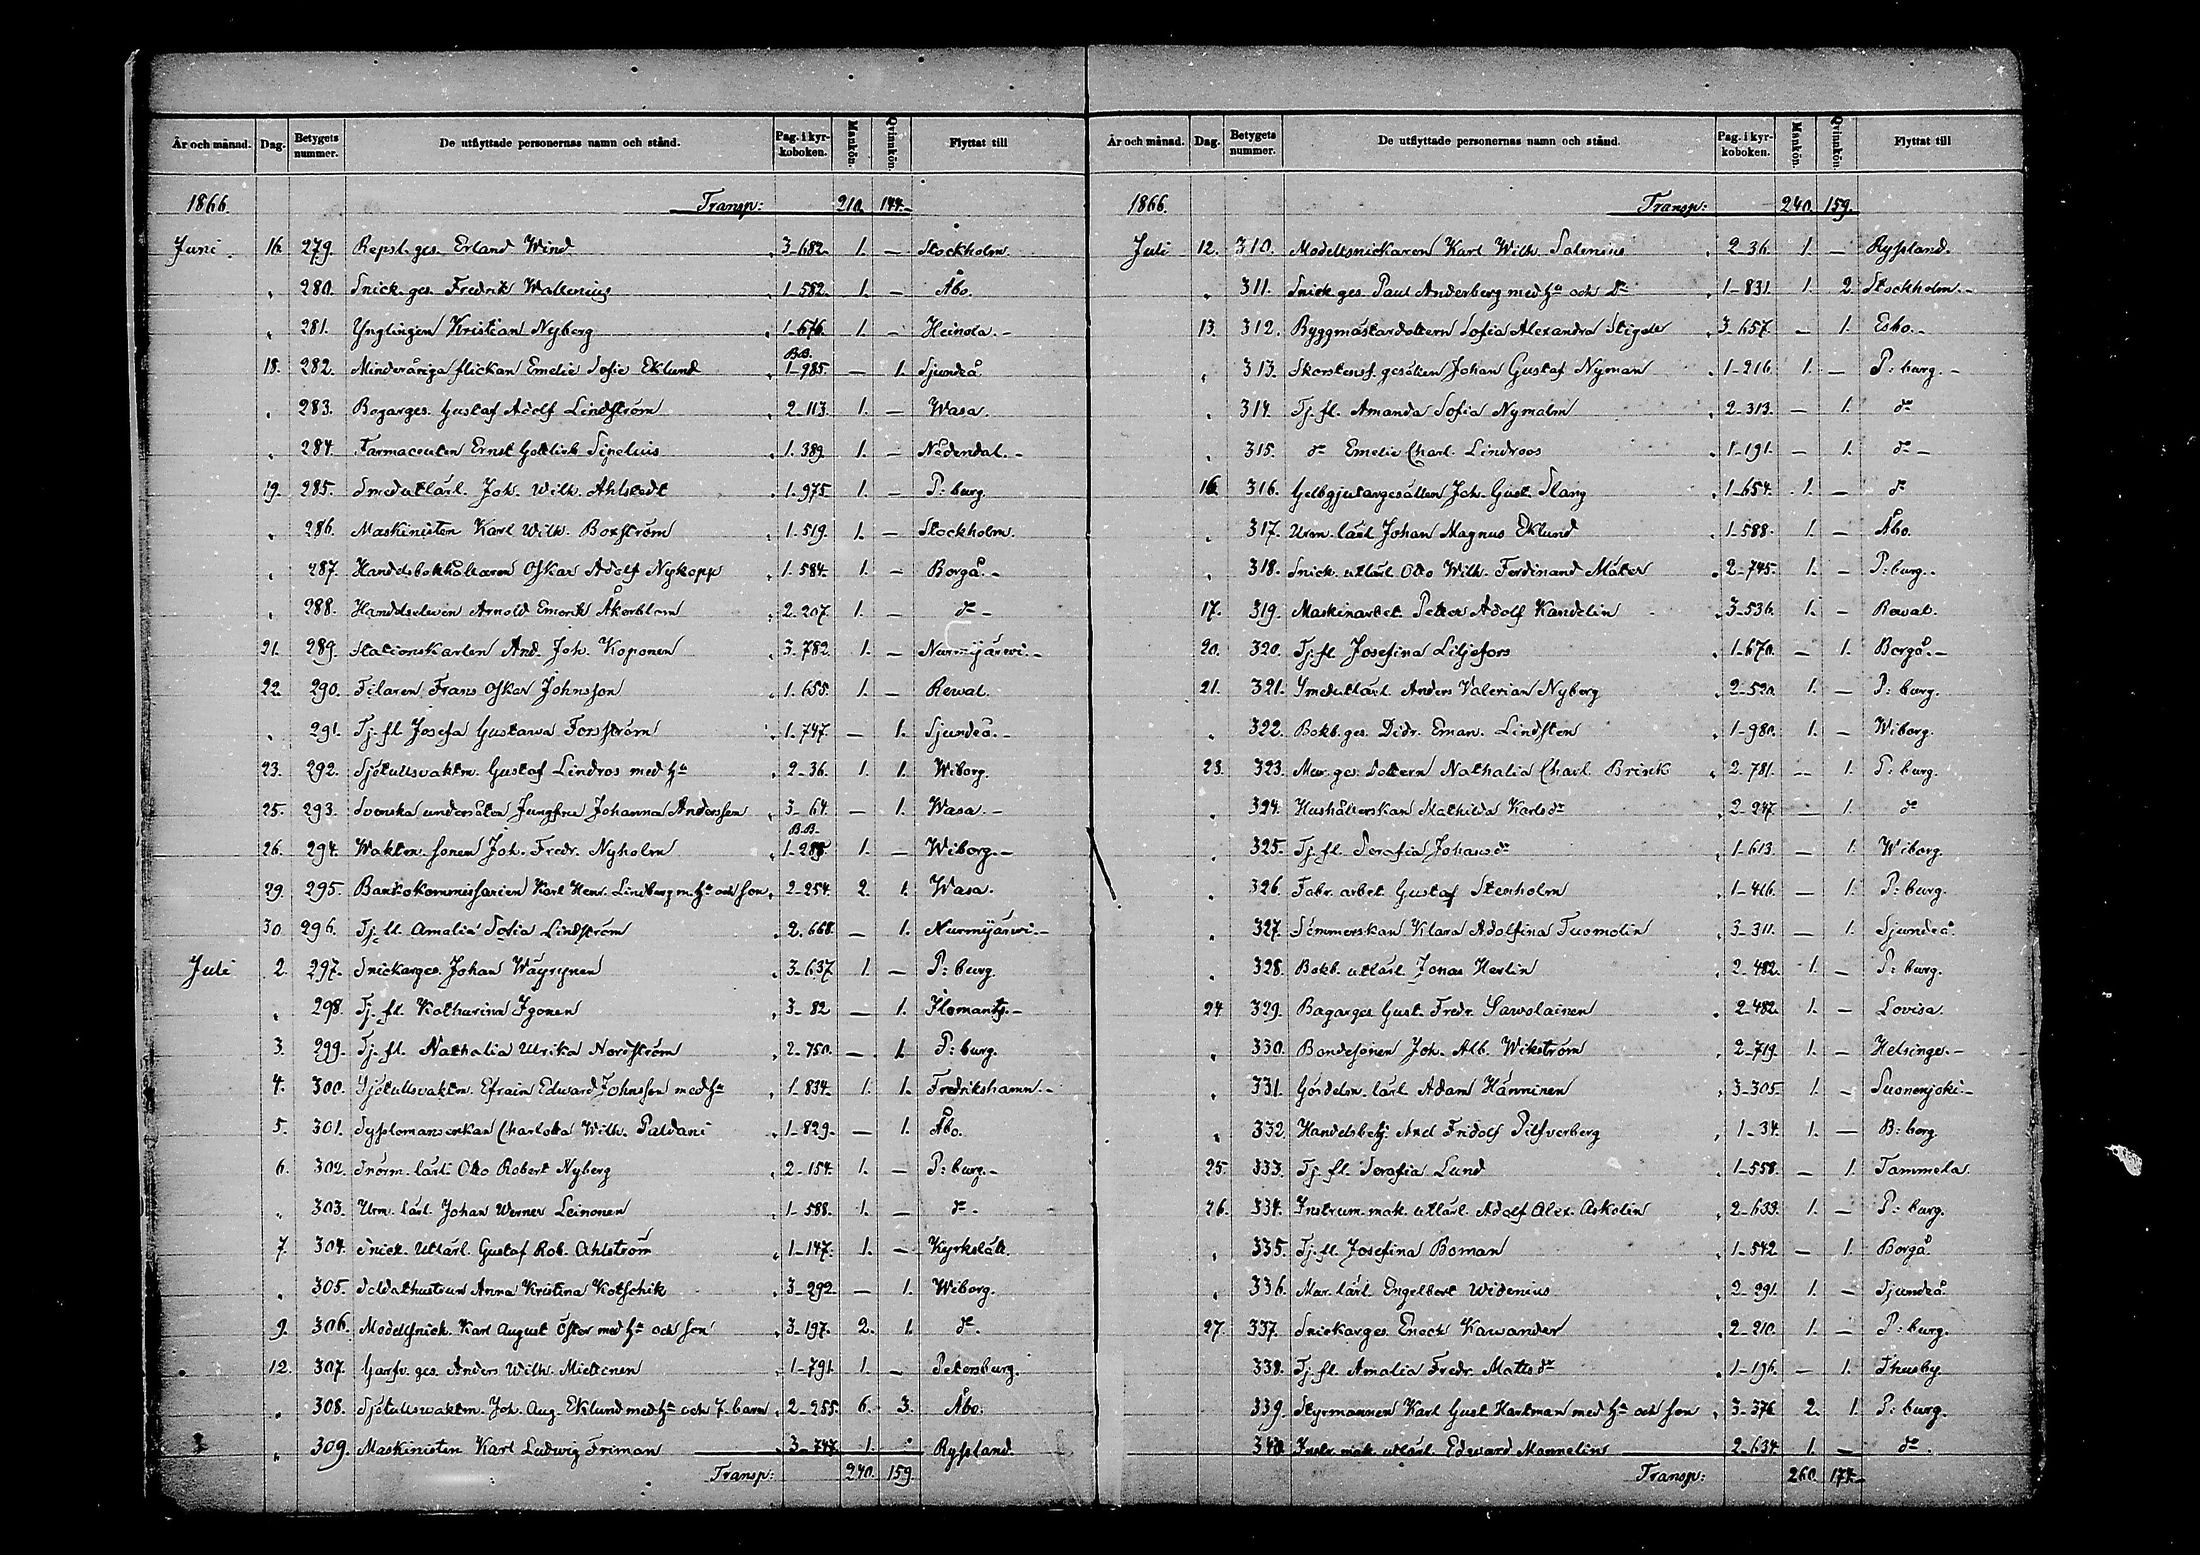 År och månad. Dag. Betygets nummer. De utflyttade personernas namn och stånd. Pag. i kyrkoboken. Mankön. Qvinnkön. Flyttat till
1866. Transp: 210. 144.
Juni. 16. 279. Repsl. ges. Erland Wind 3-682. 1. — Stockholm.
280. Snick. ges. Fredrik Wallenius 1-582. 1. — Åbo.
281. Ynglingen Kristian Nyberg 1-676. 1. — Heinola.
18. 282. Minderåriga flickan Emelie Sofie Eklund B.B. 1-985 — 1. Sjundeå
283. Bagarges. Gustaf Adolf Lindström 2-113. 1. — Wasa.
284. Farmaceuten Ernst Gottlieb Sipelius 1-389 1. — Nådendal.
19. 285. Smedutlärl. Joh. Wilh. Ahlstedt 1-975 1. — P:burg.
286. Maskinisten Karl Wilh. Boxström 1-519. 1. — Stockholm.
287. Handelsbokhållaren Oskar Adolf Nykopp 1-584. 1. — Borgå.
288. Handelseleven Arnold Emerik Åkerblom 2-207. 1. — do
21. 289. Stationskarlen And. Joh. Koponen 3-782. 1. — Nurmijärwi.
22. 290. Filaren Frans Oskar Johnsson 1-655. 1. — Rewal.
291. Tj. fl. Josefa Gustawa Forsström 1-747. — 1. Sjundeå.
23. 292. Sjötullsvaktm. Gustaf Lindros med hu 2-36. 1. 1. Wiborg.
25. 293. Svenska undersåten Jungfru Johanna Andersson 3-64. — 1. Wasa.
26. 294. Waktm. sonen Joh. Fredr. Nyholm B.B. 1-288. 1. — Wiborg.
29. 295. Bankokommissarien Karl Henr. Lindberg m. hu och son 2-254. 2. 1. Wasa.
30. 296. Tj. fl. Amalia Sofia Lindström 2-668. — 1. Nurmijärwi.
Juli 2. 297. Snickarges. Johan Wäyrynen 3-637. 1. — P:burg.
298. Tj. fl. Katharina Igonen 3-82 — 1. Ilomants.
3. 299. Tj. fl. Nathalia Ulrika Nordström 2-750. — 1. P:burg.
4. 300. Sjötullsvaktm. Efraim Edward Johnsson med hu 1-834. 1. 1. Fredrikshamn.
5. 301. Sysslomansenkan Charlotta Wilh. Paldani 1-829. — 1. Åbo.
6. 302. Snörm. lärl. Otto Robert Nyberg 2-154. 1. — P:burg.
303. Urm. lärl. Johan Werner Leinonen 1-588. 1. — do
7. 304. Snick. Utlärl. Gustaf Rob. Ahlström 1-147. 1. — Kyrkslätt.
305. Soldathustrun Anna Kristina Kotschik 3-292 — 1. Wiborg.
9. 306. Modellsnick. Karl August Öster med hu och son 3-197. 2. 1. do
12. 307. Garfv. ges. Anders Wilh. Miettinen 1-791. 1. — Petersburg.
308. Sjötullsvaktm. Joh. Aug. Eklund med hu och 7 barn 2-255. 6. 3. Åbo.
309. Maskinisten Karl Ludwig Friman 3-747. 1. Ryssland.
Transp: 240. 159.
År och månad. Dag. Betygets nummer. De utflyttade personernas namn och stånd. Pag. i kyrkoboken. Mankön. Qvinnkön. Flyttat till
1866. Transp: 240. 159.
Juli 12. 310. Modellsnickaren Karl Wilh. Salenius 2-36. 1. — Ryssland.
311. Snick. ges. Paul Anderberg med hu och dr 1-831. 1. 2. Stockholm.
13. 312. Byggmästardottern Sofia Alexandra Stigell 3-657. — 1. Esbo.
313. Skorstensf. gesällen Johan Gustaf Nyman 1-216. 1. — P:burg.
314. Tj. fl. Amanda Sofia Nymalm 2-313. — 1. do
315. do Emelie Charl. Lindroos 1-191. — 1. do
16. 316. Gelbgjutargesällen Joh. Gust. Slang 1-654. 1. — do
317. Urm. lärl. Johan Magnus Eklund 1-588. 1. — Åbo.
318. Snick. utlärl. Otto Wilh. Ferdinand Mäter 2-745. 1. — P:burg.
17. 319. Maskinarbet. Petter Adolf Kandelin 3-536. 1. — Rewal.
20. 320. Tj. fl. Josefina Liljefors 1-670. — 1. Borgå.
21. 321. Smedutlärl. Anders Valerian Nyberg 2-520. 1. — P:burg.
322. Bokb. ges. Didr. Eman. Lindsten 1-980. 1. — Wiborg.
23. 323. Mur. ges. dottern Nathalia Charl. Brinck 2-781. — 1. P:burg.
324. Hushållerskan Mathilda Karlsdr 2-247. 1. do
325. Tj. fl. Serafia Johansdr 1-613. — 1. Wiborg.
326. Fabr. arbet. Gustaf Stenholm 1-416. — 1. P:burg.
327. Sömmerskan Klara Adolfina Tuomolin 3-311. — 1. Sjundeå.
328. Bokb. utlärl. Jonas Herlin 2-482. 1. — P:burg.
24. 329. Bagarges. Gust. Fredr. Sawolainen 2-482. 1. — Lovisa.
330. Bondesonen Joh. Alb. Wikström 2-719. 1. — Helsinge.
331. Gördelm. lärl. Adam Hänninen 3-305. 1. — Suonenjoki.
332. Handelsbetj. Axel Fridolf Pilfverberg 1-34. 1. — B:borg.
25. 333. Tj. fl. Serafia Lund 1-558. — 1. Tammela.
26. 334. Instrum. mak. utlärl. Adolf Alex. Askolin 2-633. 1. — P:burg.
335. Tj. fl. Josefina Boman 1-542. — 1. Borgå.
336. Mur. lärl. Engelbert Widenius 2-291. 1. — Sjundeå.
27. 337. Snickarges. Enoch Kawander 2-210. 1. — P:burg.
338. Tj. fl. Amalia Fredr. Mattsdr 1-196. — 1. Thusby.
339. Styrmannen Karl Gust. Hartman med hu och son 3-376. 2. 1. P:burg.
340. Instr. mak. utlärl. Edward Mannelin 2-634. 1. — do
Transp: 260. 174.